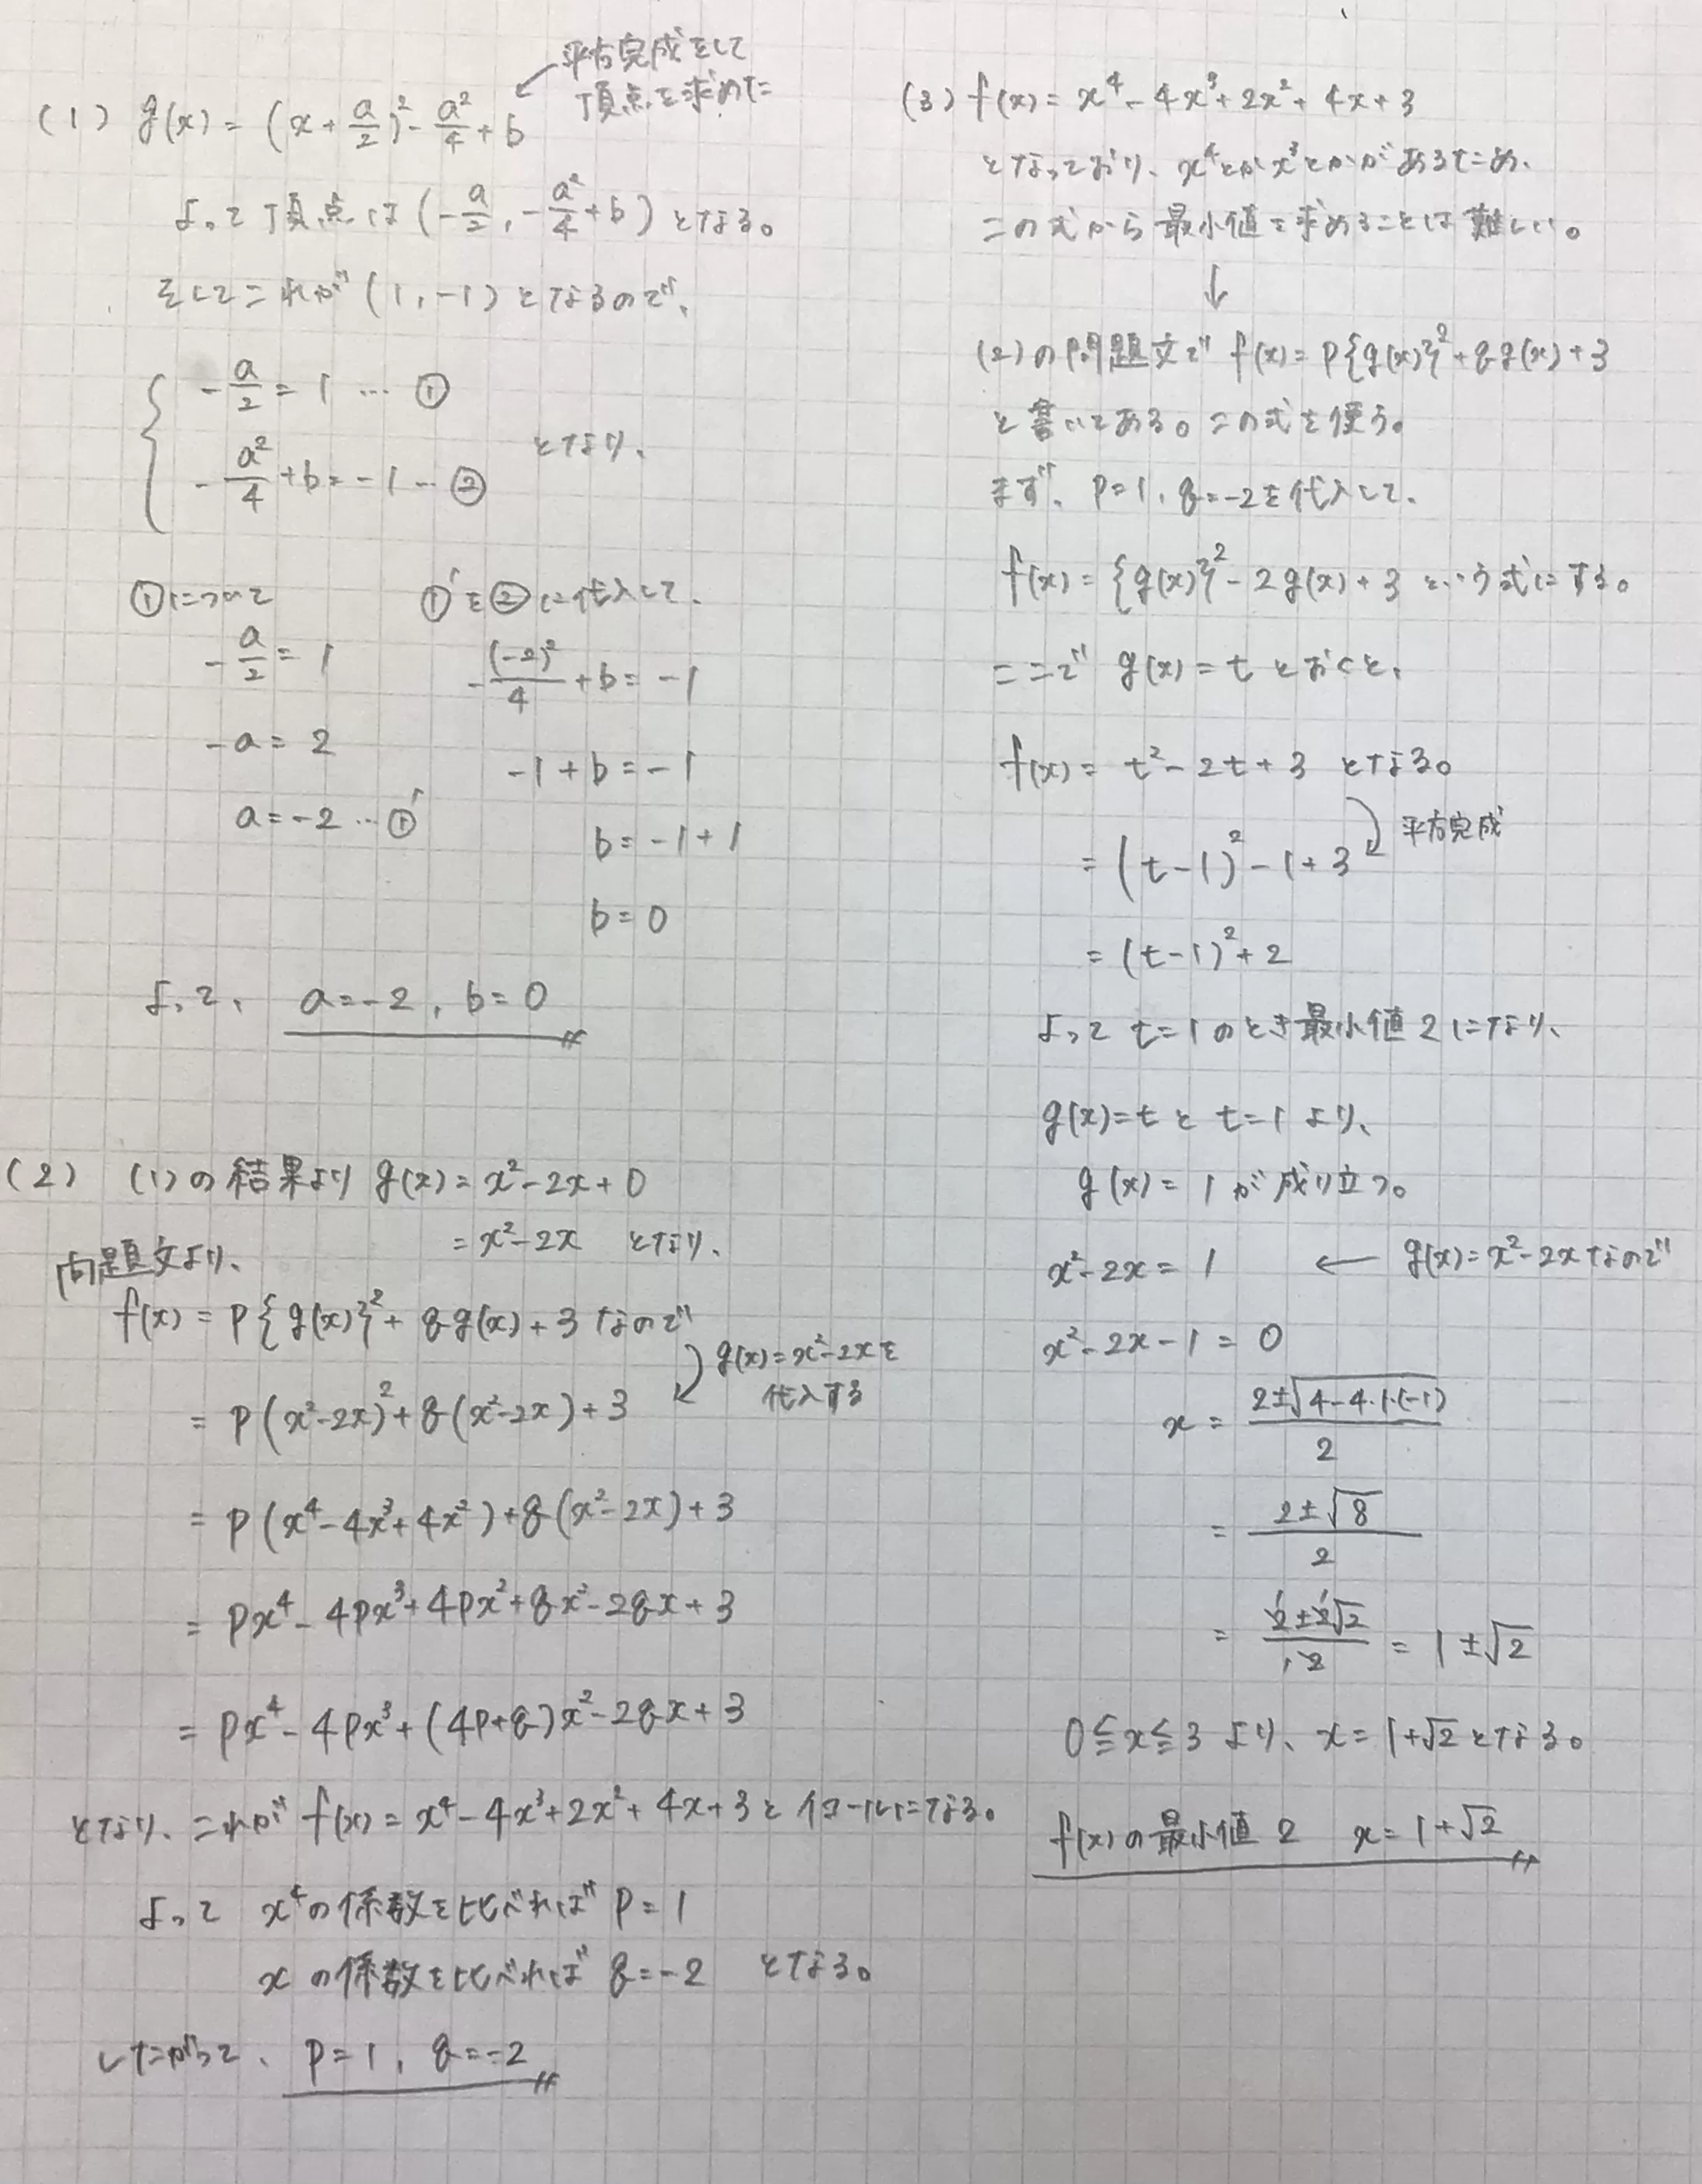 (1) g(x) = (x + a/2)² - a²/4 + b
平方完成をして
頂点を求めた
よって頂点は (-a/2, -a²/4 + b) となる。
そしてこれが (1, -1) となるので、
{ -a/2 = 1 … ①
-a²/4 + b = -1 … ②
となり、
①について
-a/2 = 1
-a = 2
a = -2 … ①'
①'を②に代入して、
-(-2)²/4 + b = -1
-1 + b = -1
b = -1 + 1
b = 0
よって、 a = -2, b = 0
(2) (1)の結果より g(x) = x² - 2x + 0
= x² - 2x となり、
問題文より、
f(x) = p{g(x)}² + qg(x) + 3 なので
g(x) = x² - 2x を
代入する
= p(x² - 2x)² + q(x² - 2x) + 3
= p(x⁴ - 4x³ + 4x²) + q(x² - 2x) + 3
= px⁴ - 4px³ + 4px² + qx² - 2qx + 3
= px⁴ - 4px³ + (4p + q)x² - 2qx + 3
となり、これが f(x) = x⁴ - 4x³ + 2x² + 4x + 3 とイコールになる。
よって x⁴の係数を比べれば p = 1
xの係数を比べれば q = -2 となる。
したがって、 p = 1, q = -2
(3) f(x) = x⁴ - 4x³ + 2x² + 4x + 3
となっており、x⁴とかx³とかがあるため、
この式から最小値を求めることは難しい。
↓
(2)の問題文で f(x) = p{g(x)}² + qg(x) + 3
と書いてある。この式を使う。
まず、p = 1, q = -2を代入して、
f(x) = {g(x)}² - 2g(x) + 3 という式にする。
ここで g(x) = t とおくと、
f(x) = t² - 2t + 3 となる。
平方完成
= (t - 1)² - 1 + 3
= (t - 1)² + 2
よって t = 1 のとき最小値 2 になり、
g(x) = t と t = 1 より、
g(x) = 1 が成り立つ。
x² - 2x = 1 ← g(x) = x² - 2x なので
x² - 2x - 1 = 0
x = (2 ± √(4 - 4・1・(-1)))/2
= (2 ± √8)/2
= (2 ± 2√2)/2 = 1 ± √2
0 ≦ x ≦ 3 より、x = 1 + √2 となる。
f(x)の最小値 2 x = 1 + √2